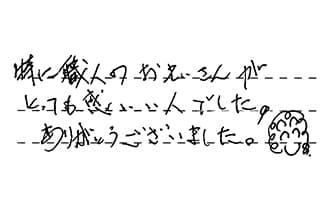 特に職人のお兄さんが
とっても感じいい人でした。
ありがとうございました。